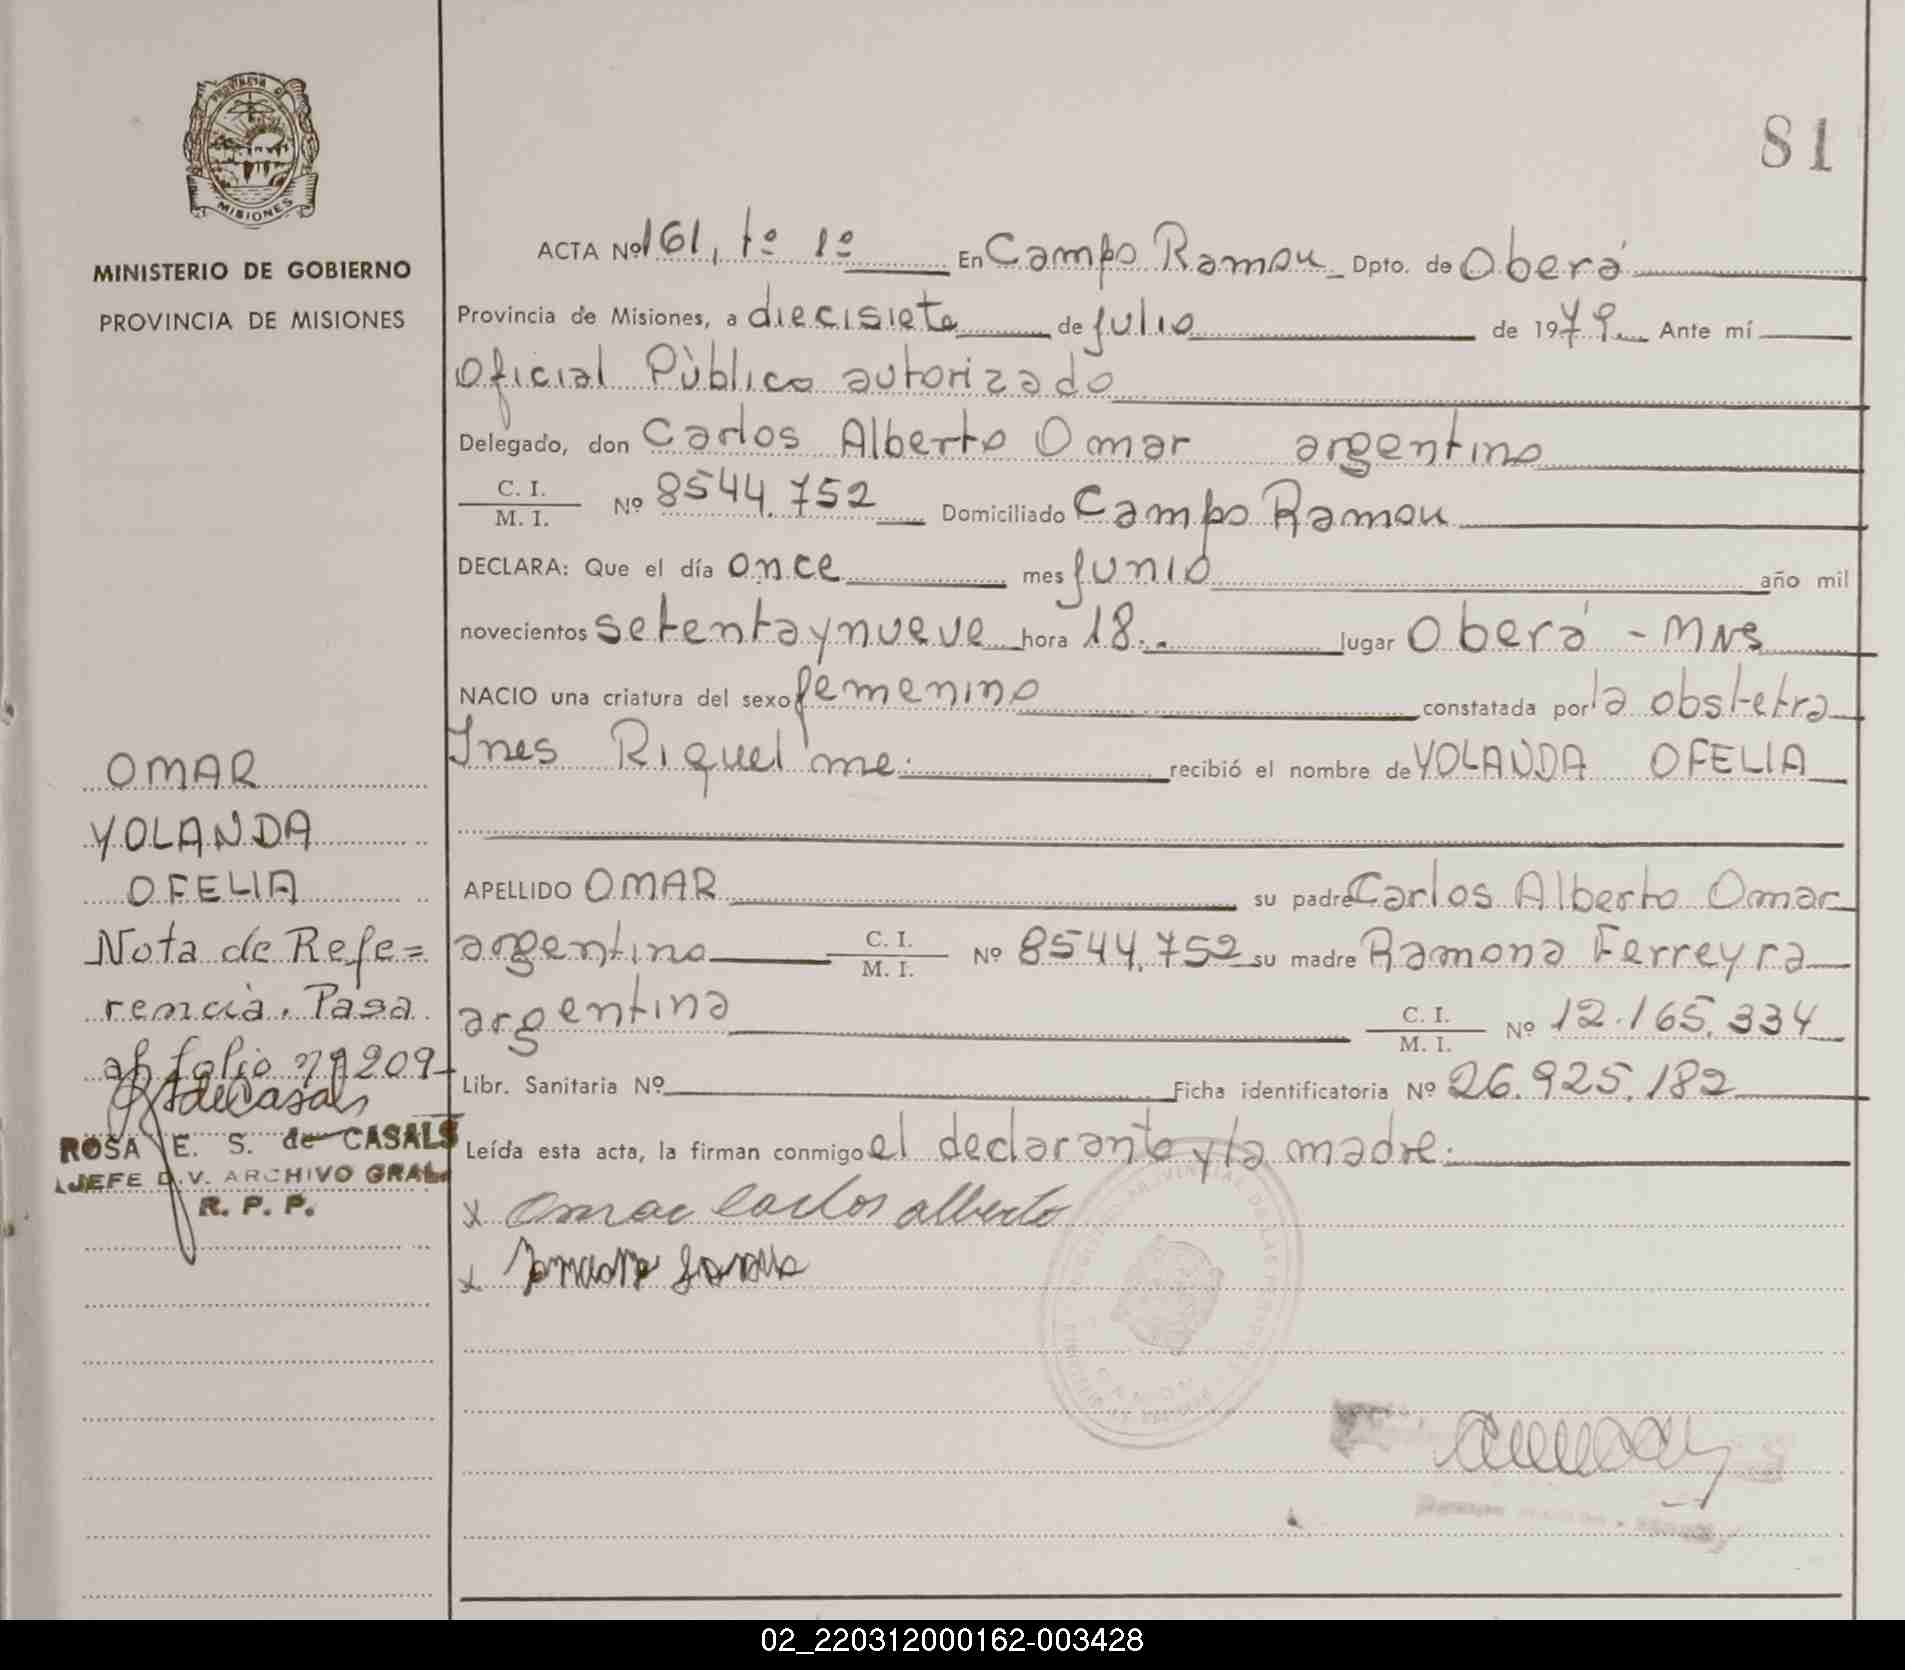 PROVINCIA DE
MISIONES
MINISTERIO DE GOBIERNO
PROVINCIA DE MISIONES
81
ACTA Nº 161, tº 1º En Campo Ramon Dpto. de Oberá
Provincia de Misiones, a diecisiete de julio de 1979 Ante mí
Oficial Público autorizado
Delegado, don Carlos Alberto Omar argentino
C. I.
M. I. Nº 8544.752 Domiciliado Campo Ramon
DECLARA: Que el día once mes junio año mil
novecientos setentaynueve hora 18.. lugar Oberá - MNS
NACIO una criatura del sexo femenino constatada por la obstetra
Ines Riquelme. recibió el nombre de YOLANDA OFELIA
APELLIDO OMAR su padre Carlos Alberto Omar
argentino C. I.
M. I. Nº 8544.752 su madre Ramona Ferreyra
argentina C. I.
M. I. Nº 12.165.334
Libr. Sanitaria Nº Ficha identificatoria Nº 26.925.182
Leída esta acta, la firman conmigo el declarante y la madre.
x Omar Carlos alberto
x
OMAR
YOLANDA
OFELIA
Nota de Refe=
rencia. Pasa
al folio nº 209
ROSA E. S. de CASALS
JEFE DIV. ARCHIVO GRAL.
R. P. P.
02_220312000162-003428